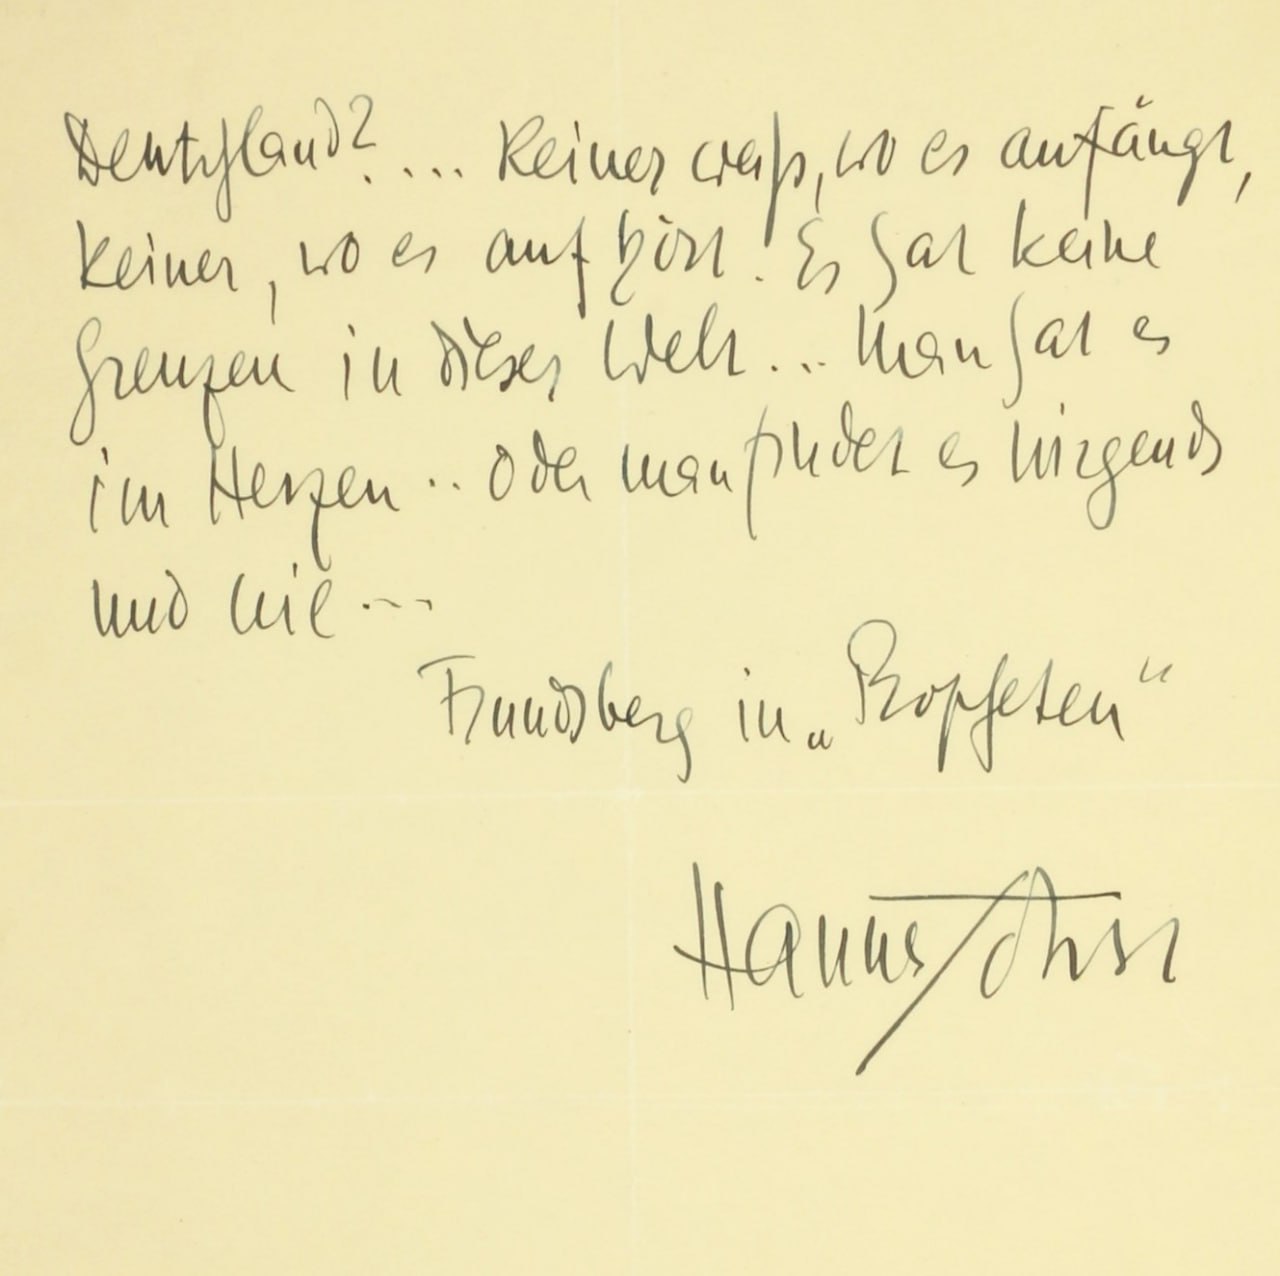 Deutschland? .... Keiner weiß, wo es anfängt,
keiner, wo es aufhört. Es hat keine
Grenzen in dieser Welt ... Man hat es
im Herzen .. oder man findet es nirgends
und nie ...
Frundsberg in „Propheten“
Hanns Johst